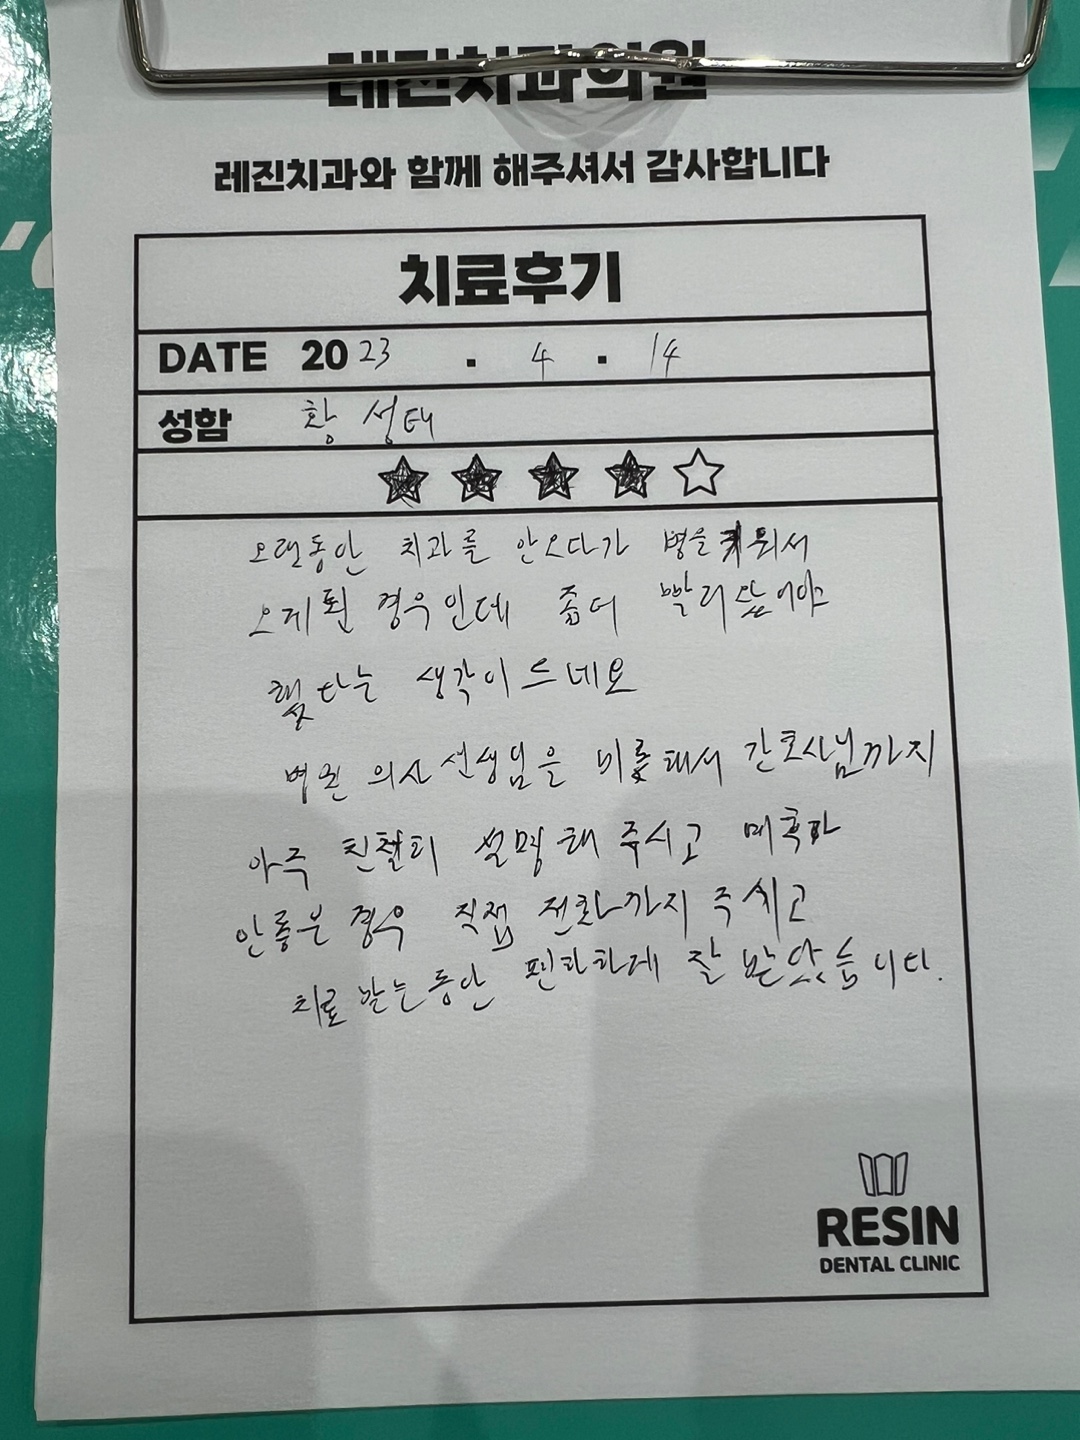 레진치과의원
레진치과와 함께 해주셔서 감사합니다
치료후기
DATE 2023 . 4 . 14
성함 황성태
오랜동안 치과를 안오다가 병을 키워서
오게된 경우인데 좀더 빨리왔어야
했다는 생각이 드네요
병원 의사 선생님을 비롯해서 간호사님까지
아주 친절히 설명해 주시고 예후가
안좋은 경우 직접 전화까지 주시고
치료 받는동안 편하게 잘 받았습니다.
RESIN
DENTAL CLINIC